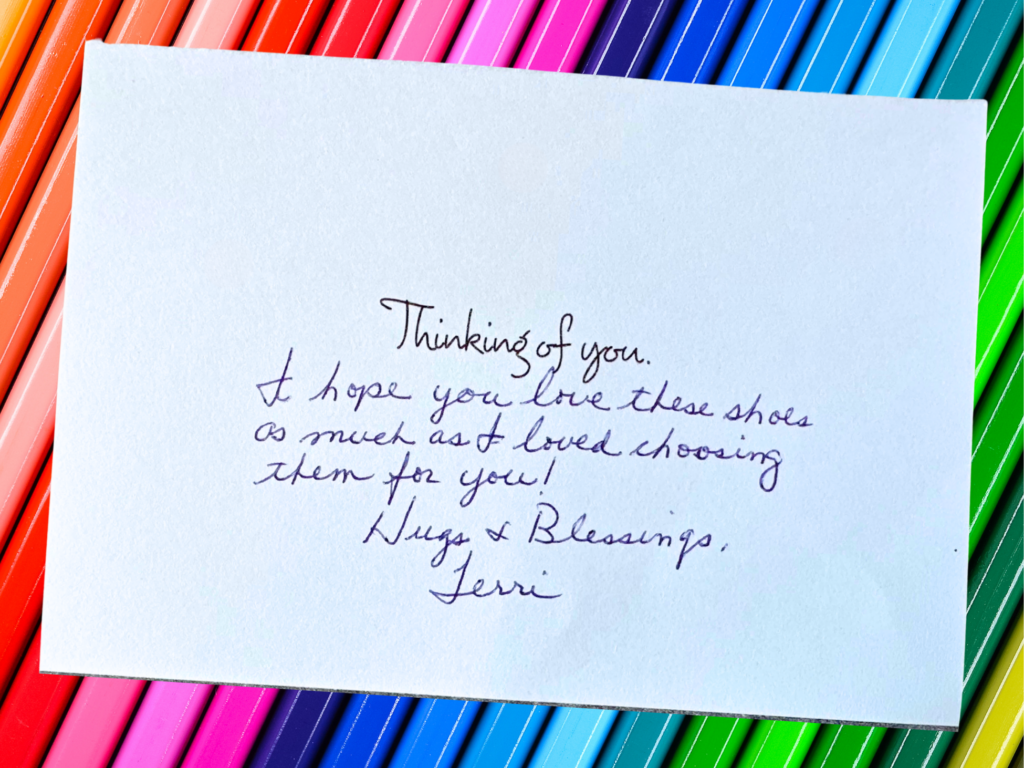 Thinking of you.
I hope you love these shoes
as much as I loved choosing
them for you!
Hugs & Blessings,
Terri